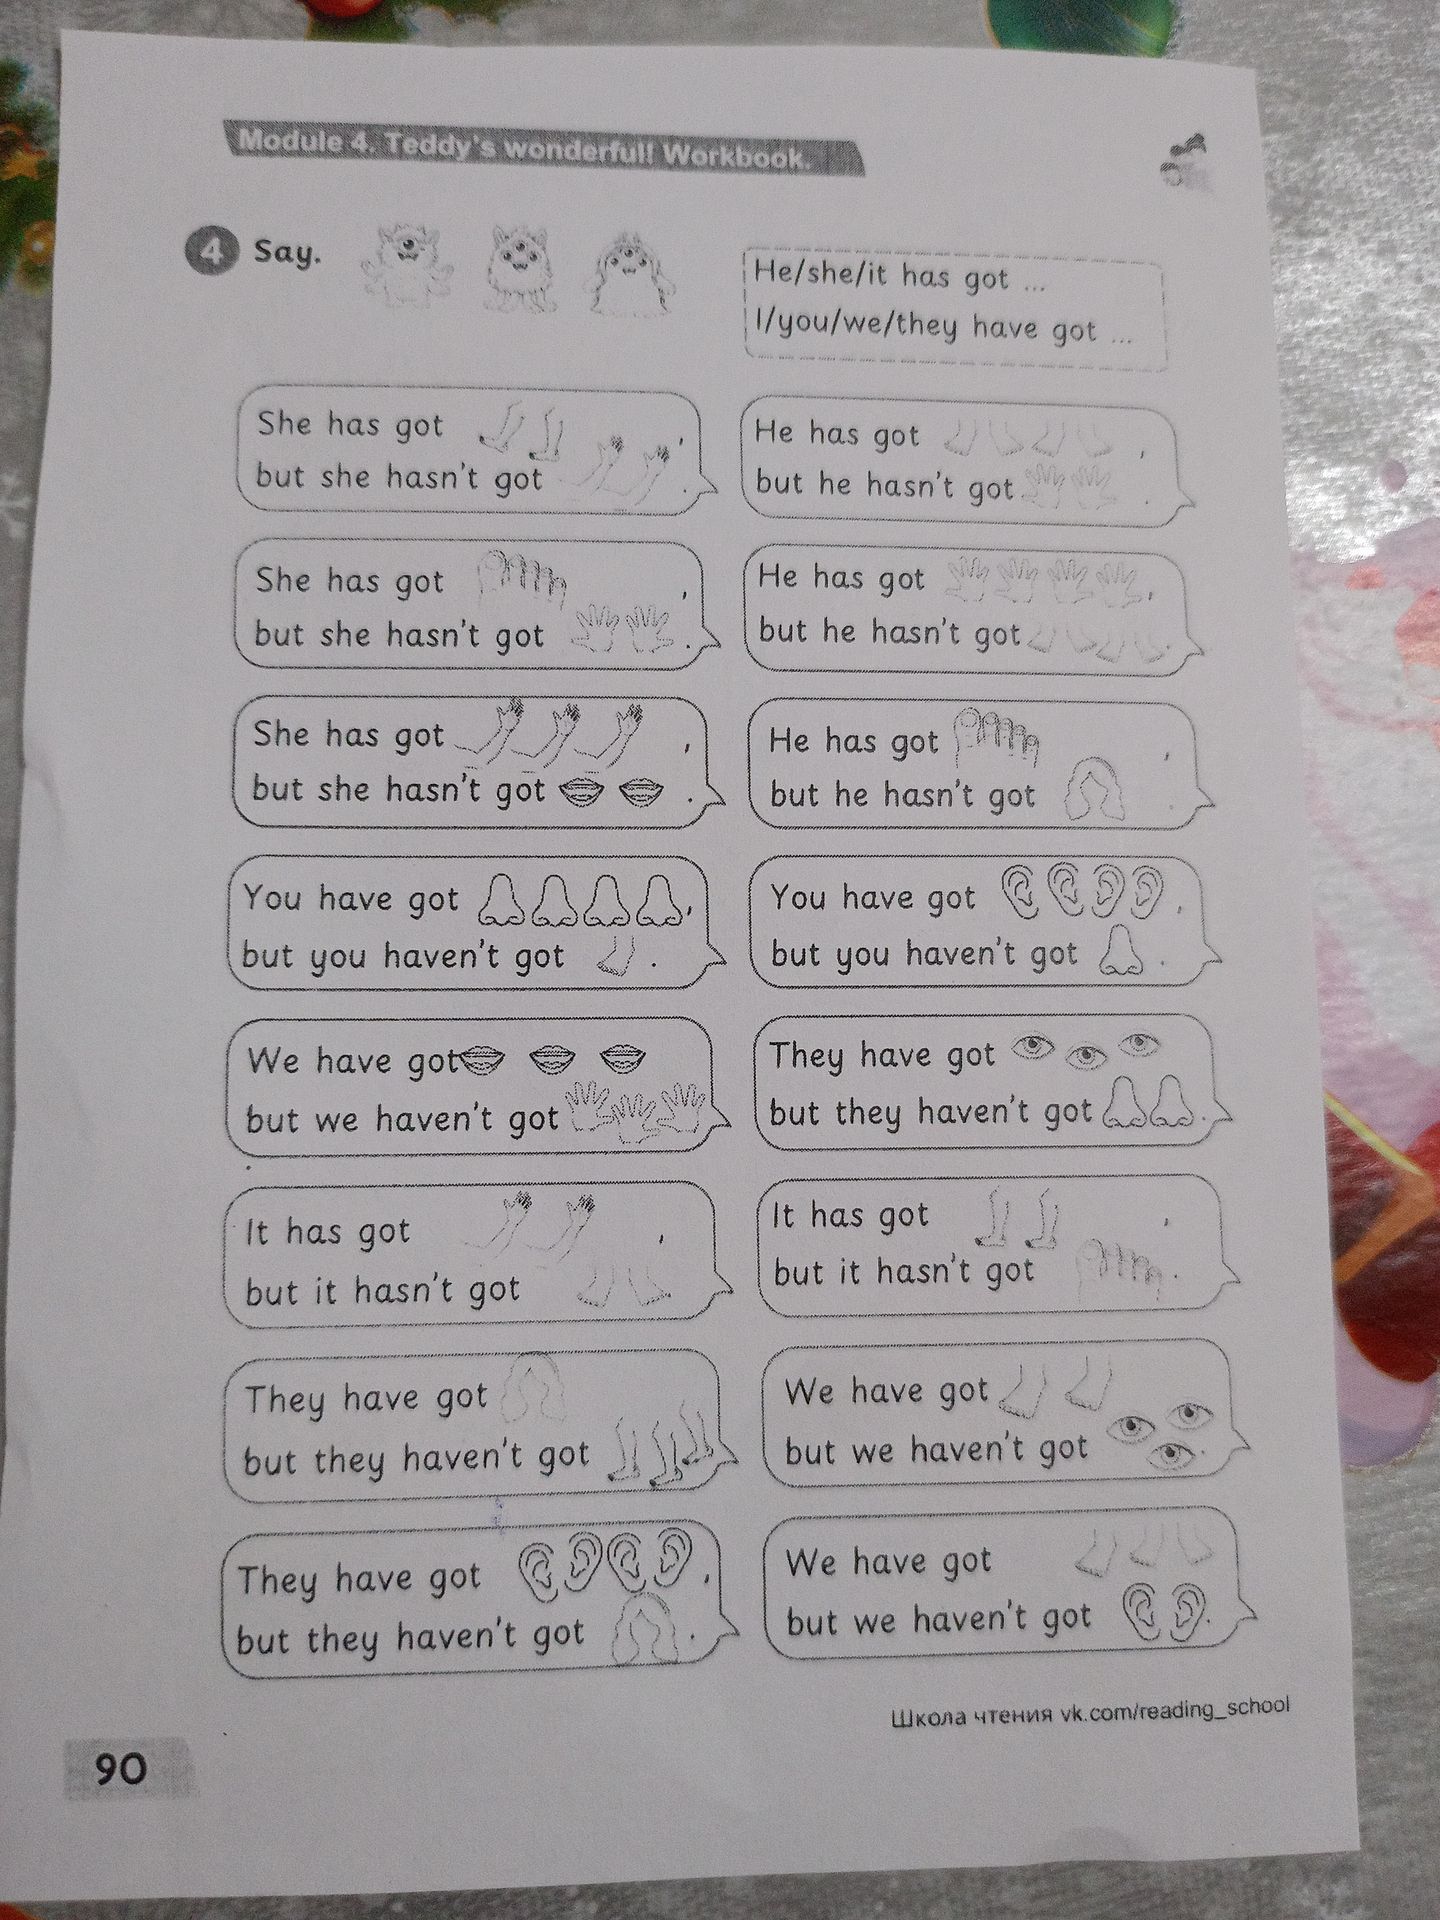 Module 4. Teddy's wonderful! Workbook.
4 Say.
He/she/it has got ...
I/you/we/they have got ...
She has got ,
but she hasn't got .
He has got ,
but he hasn't got .
She has got ,
but she hasn't got .
He has got ,
but he hasn't got .
She has got ,
but she hasn't got .
He has got ,
but he hasn't got .
You have got ,
but you haven't got .
You have got ,
but you haven't got .
We have got
but we haven't got
They have got
but they haven't got .
It has got ,
but it hasn't got .
It has got ,
but it hasn't got .
They have got
but they haven't got
We have got
but we haven't got .
They have got ,
but they haven't got .
We have got
but we haven't got .
Школа чтения vk.com/reading_school
90